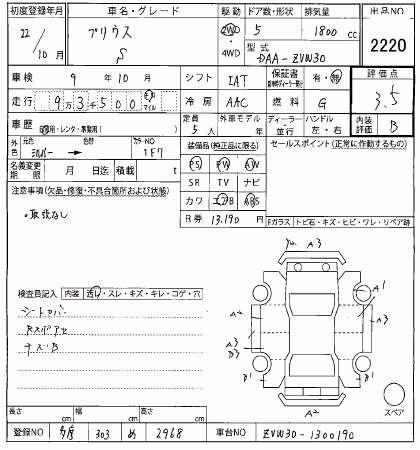 初度登録年月 車名・グレード 駆動 ドア数・形状 排気量 出品NO
22/10月 プリウス S 2WD 4WD 5 1800cc 2220
型式 DAA-ZVW30
車検 9年 10月 シフト IAT 保証書 有・無 評価点
走行 9万3千500 キロ マイル 冷房 AAC 燃料 G 3.5
車歴 自家用・レンタ・事業用 定員 5人 外車モデル 年 ディーラー・並行 ハンドル 左・右 内装評価 B
外色 元色 シルバー → 色替 カラーNO 1F7 装備品(純正品に限る) セールスポイント(正常に作動するもの)
名義変更期限 月 日迄 積載 t PS PW AW
注意事項(欠品・修復・不具合箇所および状態) SR TV ナビ
・取説なし カワ エアB ABS
R券 13,190円 Fガラス トビ石・キズ・ヒビ・ワレ・リペア跡
検査員記入 内装 汚れ・スレ・キズ・キレ・コゲ・穴
シートカバー
A3
A1
A2
A3
A3
B3
B1
B1
A2
スペア
長さ cm 幅 cm 高さ cm
登録NO 303 め 2968 車台NO ZVW30-1300190